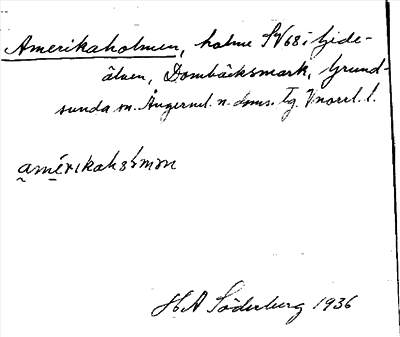 Amerikaholmen, holme SV68 i Gide-
älven, Dombäcksmark, Grund-
sunda sn. Ångerml. n. doms. tg. V:norrl. l.
amérikahɷmɷn
H A Söderberg 1936